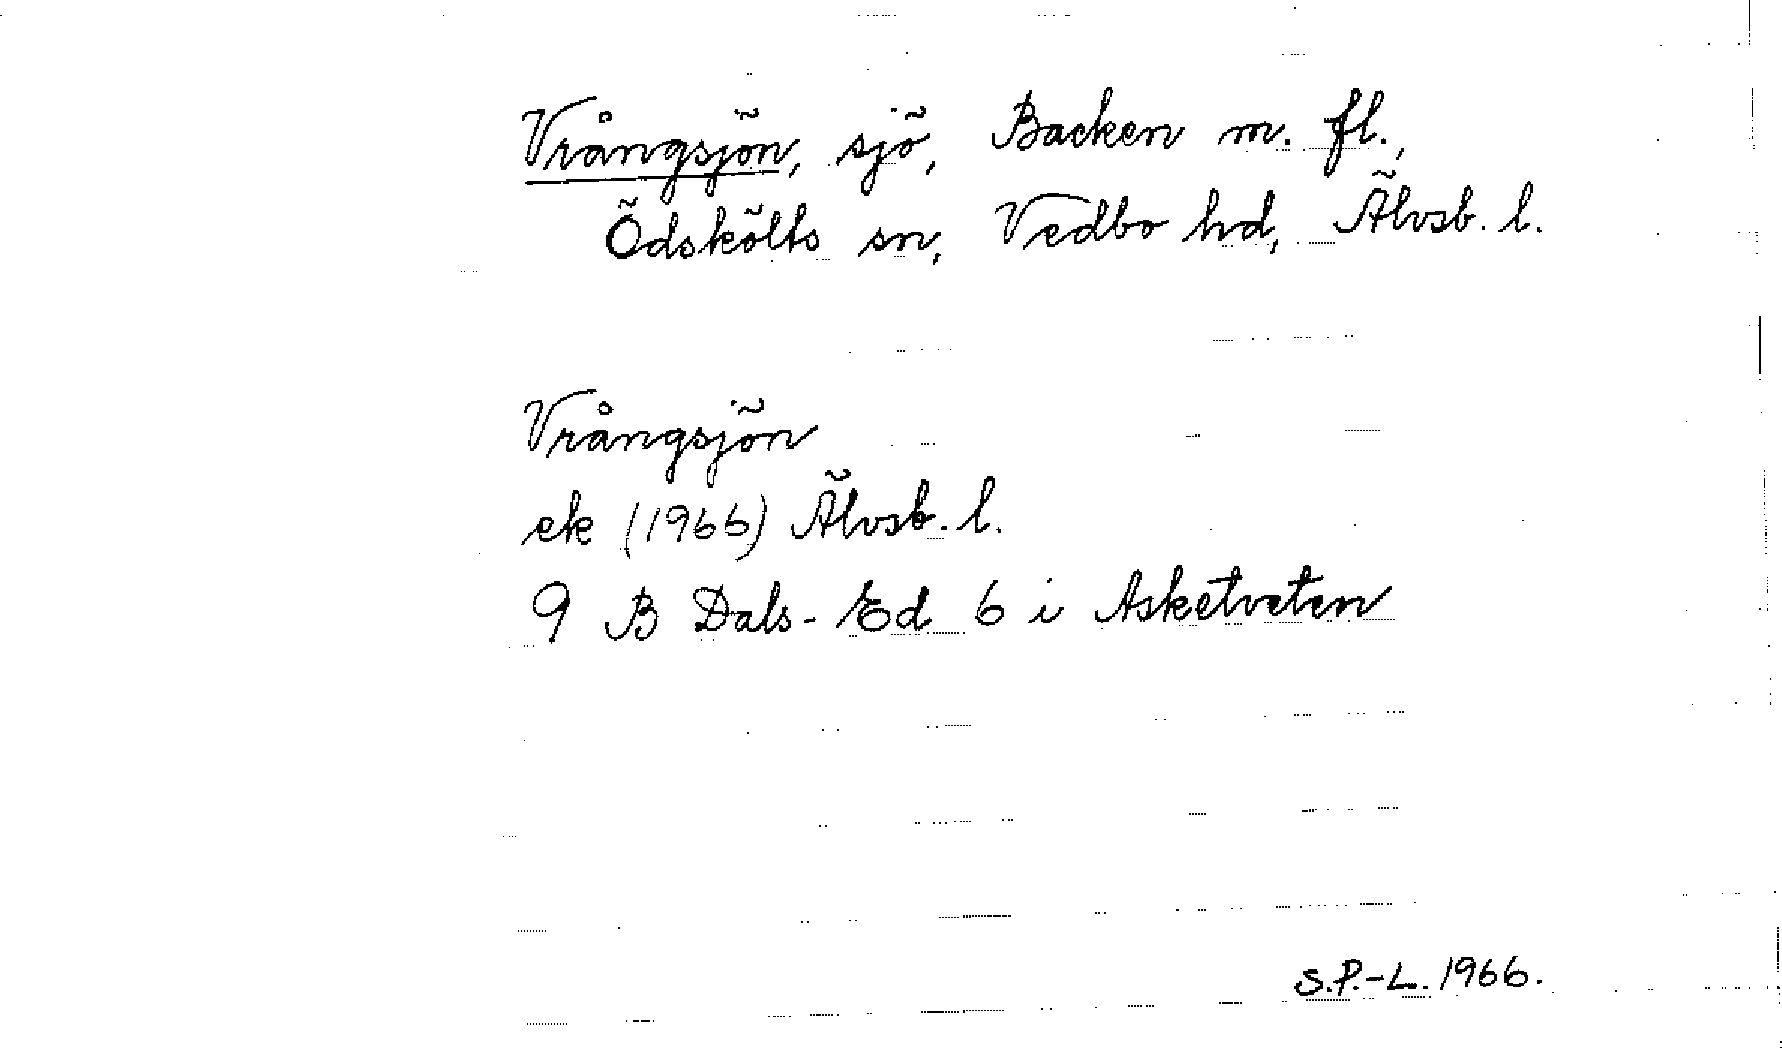 Vrångsjön, sjö, Backen m. fl.,
Ödskölts sn, Vedbo hd, Älvsb. l.
Vrångsjön
ek (1966) Älvsb. l.
9 B Dals-Ed 6 i Asketveten
S.P.-L. 1966.